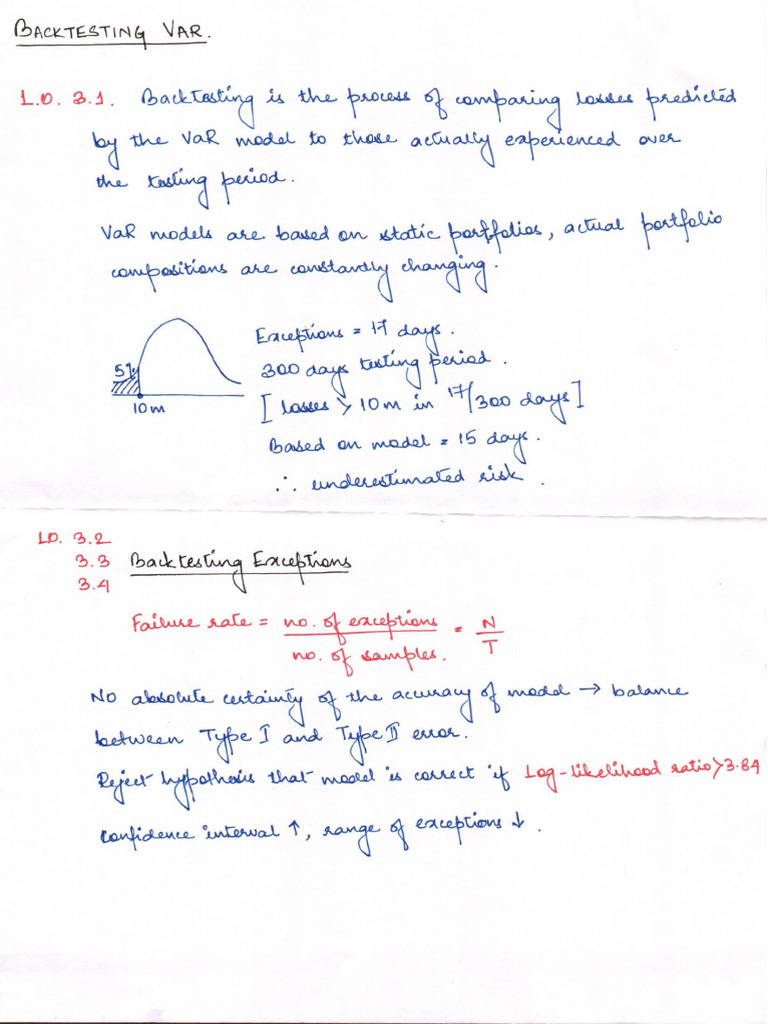 BACKTESTING VAR.
L.O. 3.1. Backtesting is the process of comparing losses predicted
by the VaR model to those actually experienced over
the testing period.
VaR models are based on static portfolios, actual portfolio
compositions are constantly changing.
5%
10m
Exceptions = 17 days.
300 days testing period.
[losses > 10m in 17/300 days]
Based on model = 15 days.
∴ underestimated risk.
LO. 3.2
3.3 Backtesting Exceptions
3.4
Failure rate = no. of exceptions / no. of samples. = N / T
No absolute certainty of the accuracy of model → balance
between Type I and Type II error.
Reject hypothesis that model is correct if Log-likelihood ratio > 3.84
confidence interval ↑, range of exceptions ↓.